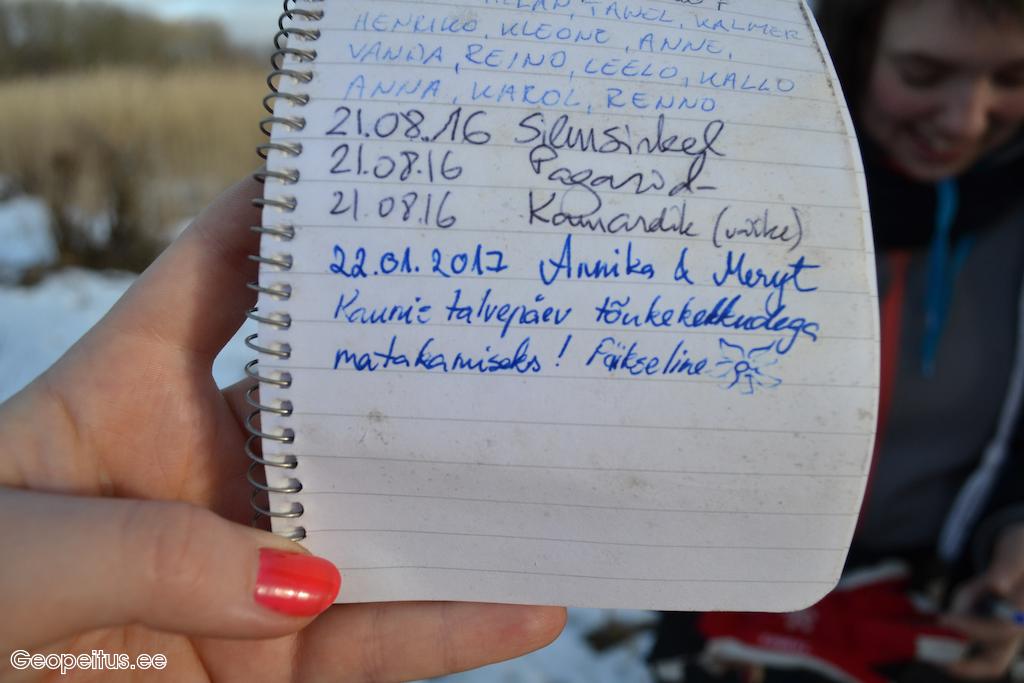 ALLAN, TANEL, KALMER
HENRIKO, KLEONE, ANNE,
VANDA, REINO, LEELO, KALLO
ANNA, KAROL, RENNO
21.08.16 Silmsinkel
21.08.16 Pagarid-
21.08.16 Kamardik (väike)
22.01.2017 Annika & Meryt
Kaunis talvepäev tõukekelkudega
matakamiseks! Päikseline
Geopeitus.ee